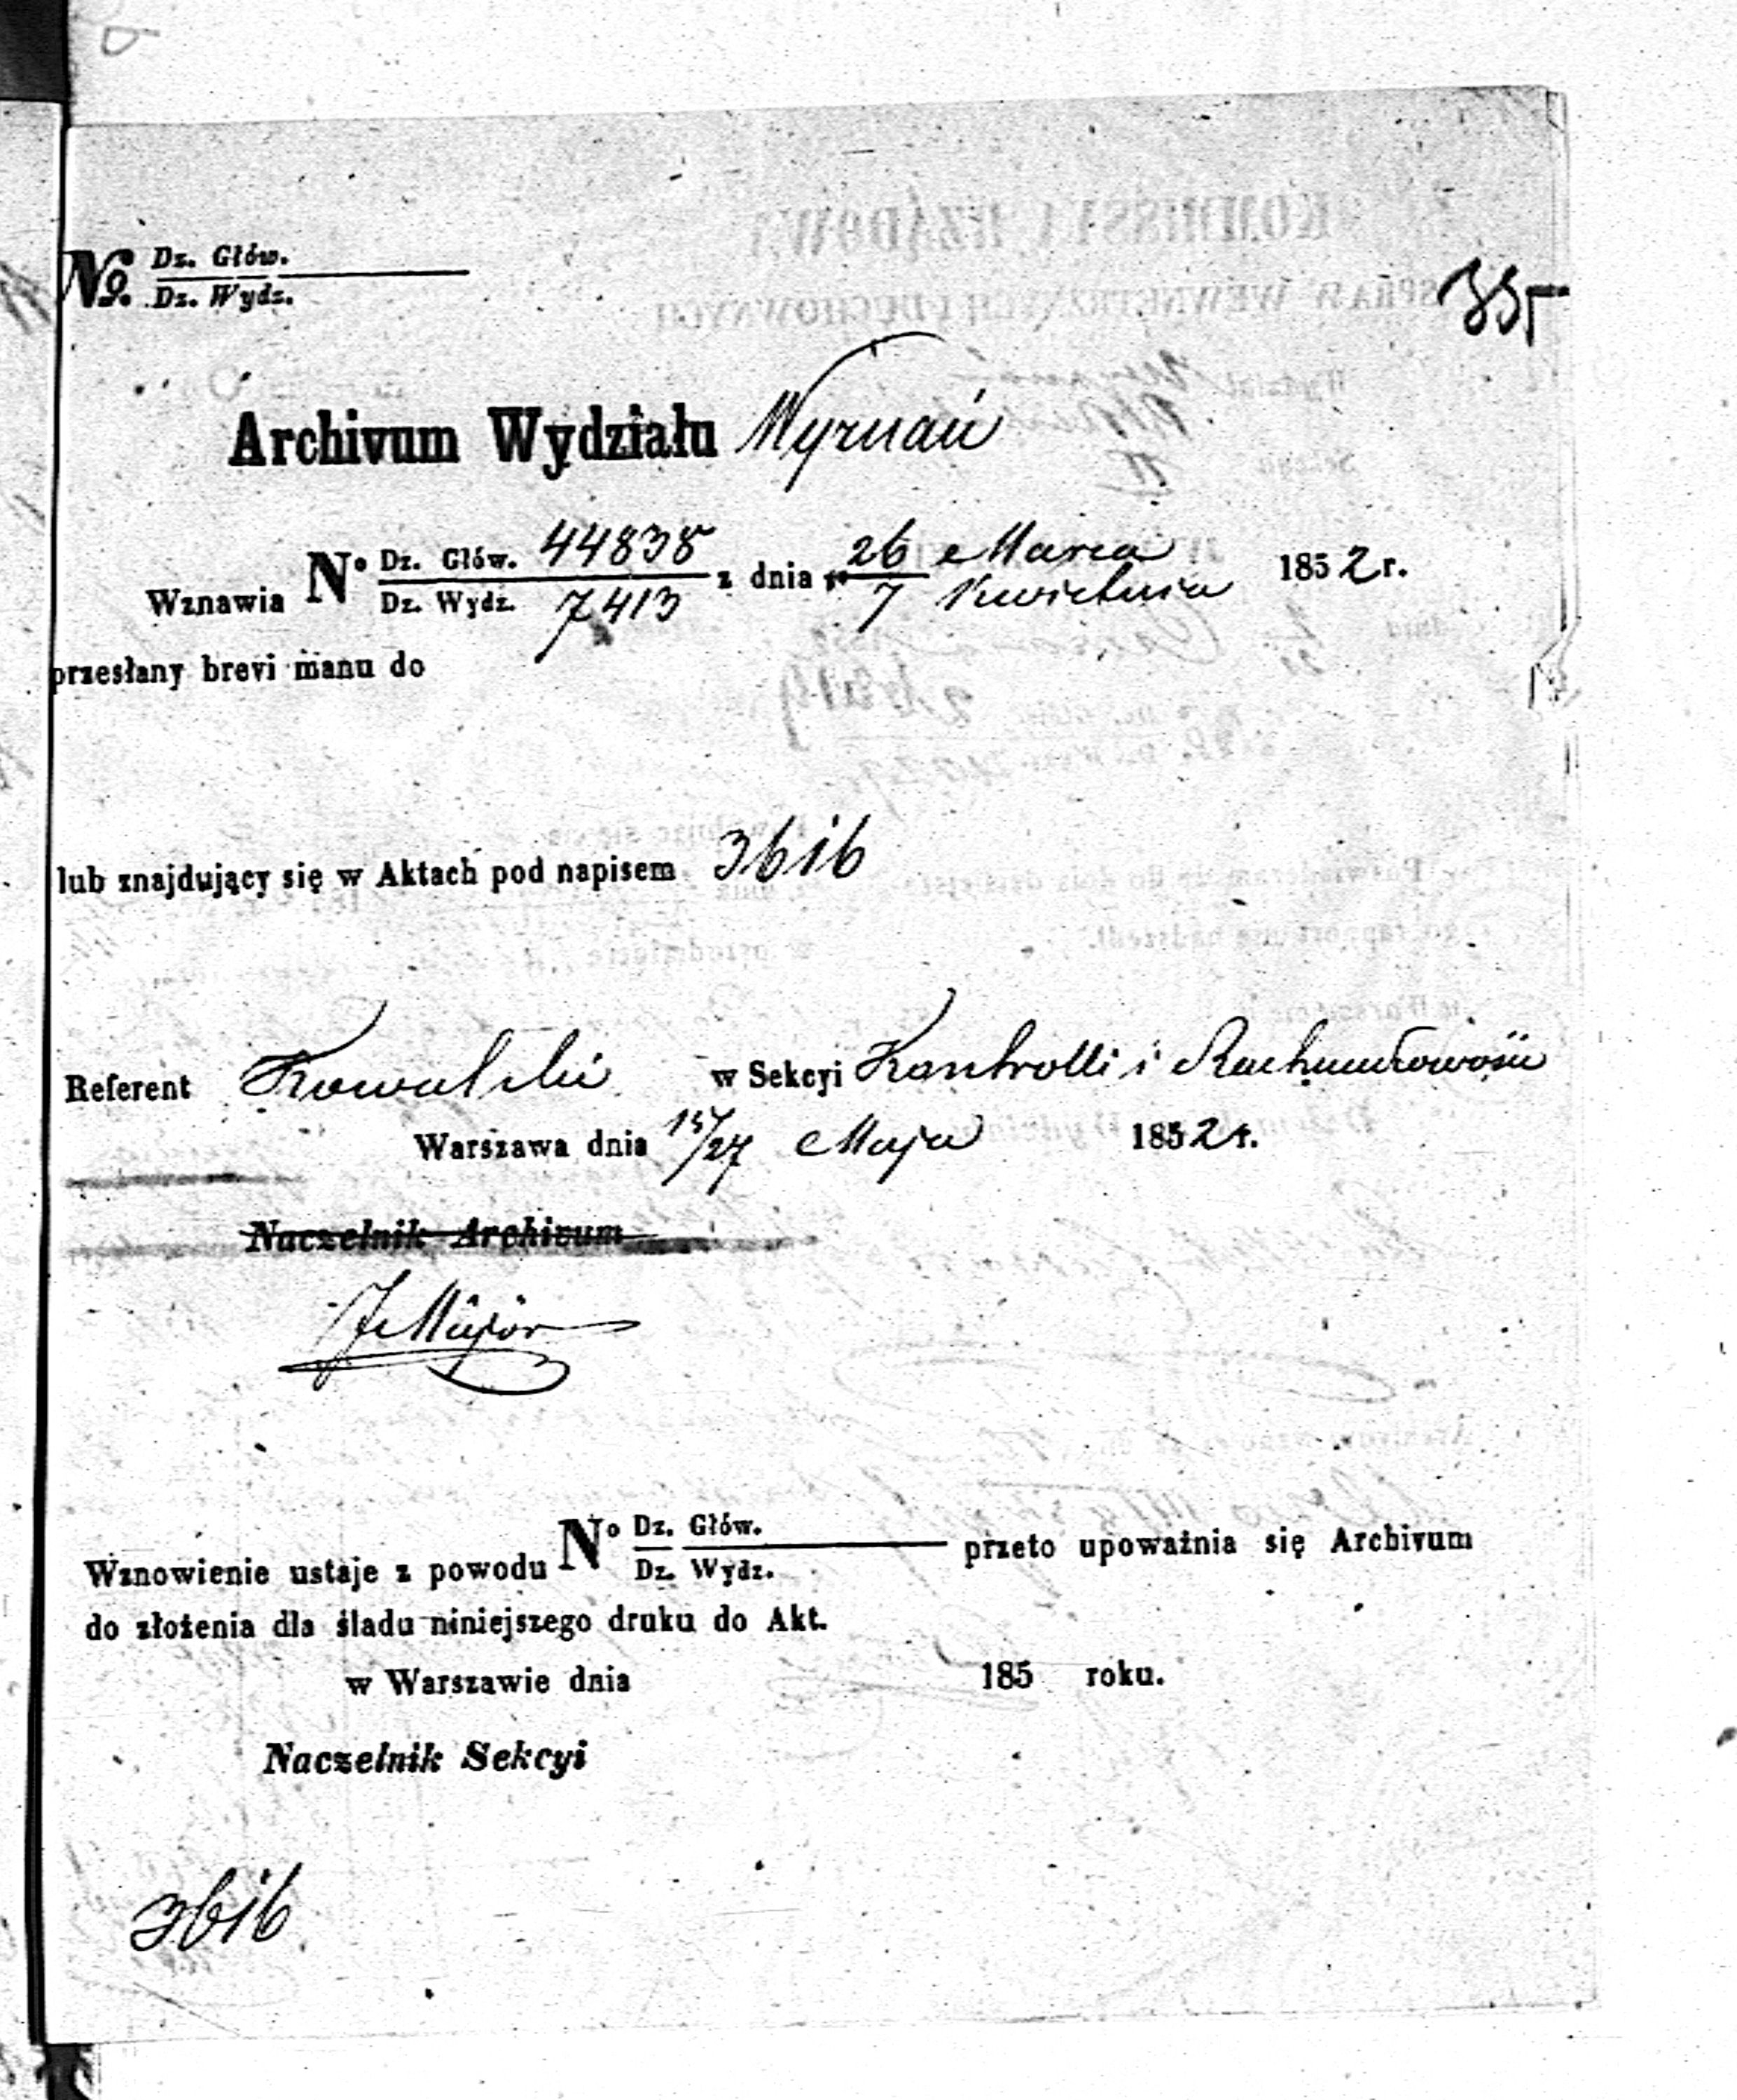 No. Dz. Głów.
Dz. Wydz.
335
Archivum Wydziału Wyznań
Wznawia No Dz. Głów. 44838 z dnia 26 Marca 1852 r.
Dz. Wydz. 7413 7 Kwietnia
przesłany brevi manu do
lub znajdujący się w Aktach pod napisem 3616
Referent Kowalski w Sekcyi Kontrolli i Rachunkowości
Warszawa dnia 15/27 Maja 1852 r.
Naczelnik Archivum
JMajor
Wznowienie ustaje z powodu No Dz. Głów. przeto upoważnia się Archivum
Dz. Wydz.
do złożenia dla śladu niniejszego druku do Akt.
w Warszawie dnia 185 roku.
Naczelnik Sekcyi
3616